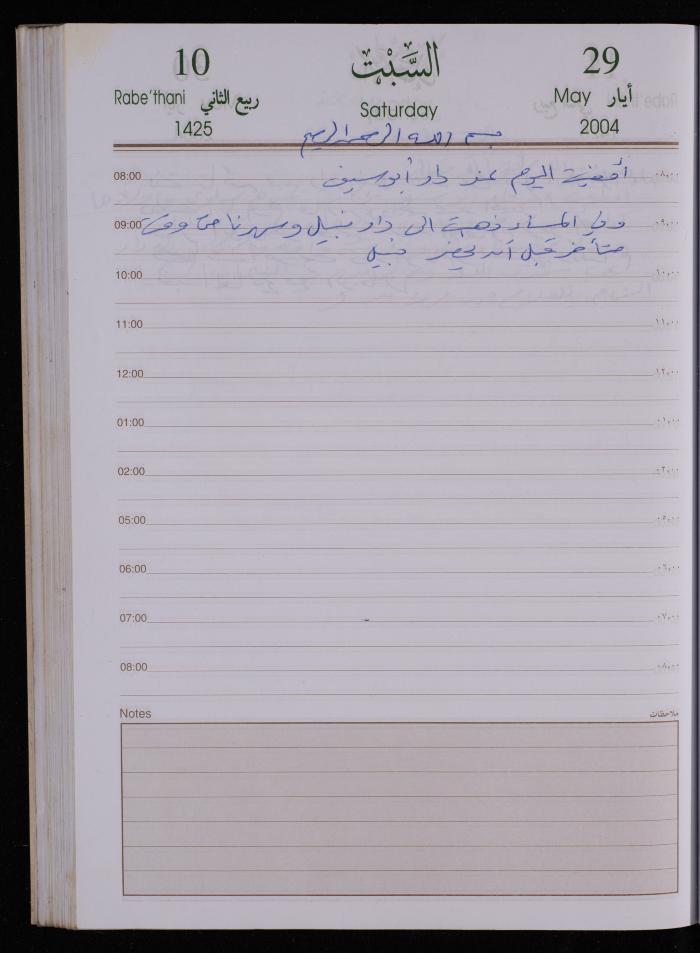 10 السَّبْت 29
Rabe'thani ربيع الثاني Saturday May أيار
1425 2004
بسم الله الرحمن الرحيم
08:00 أمضيت اليوم عند دار أبو سيف ٠٨:٠٠
09:00 وفي المساء ذهبت الى دار نبيل وسهرنا حتى وقت ٠٩:٠٠
متأخر قبل أن يحضر نبيل
10:00 ١٠:٠٠
11:00 ١١:٠٠
12:00 ١٢:٠٠
01:00 ٠١:٠٠
02:00 ٠٢:٠٠
05:00 ٠٥:٠٠
06:00 ٠٦:٠٠
07:00 ٠٧:٠٠
08:00 ٠٨:٠٠
Notes ملاحظات